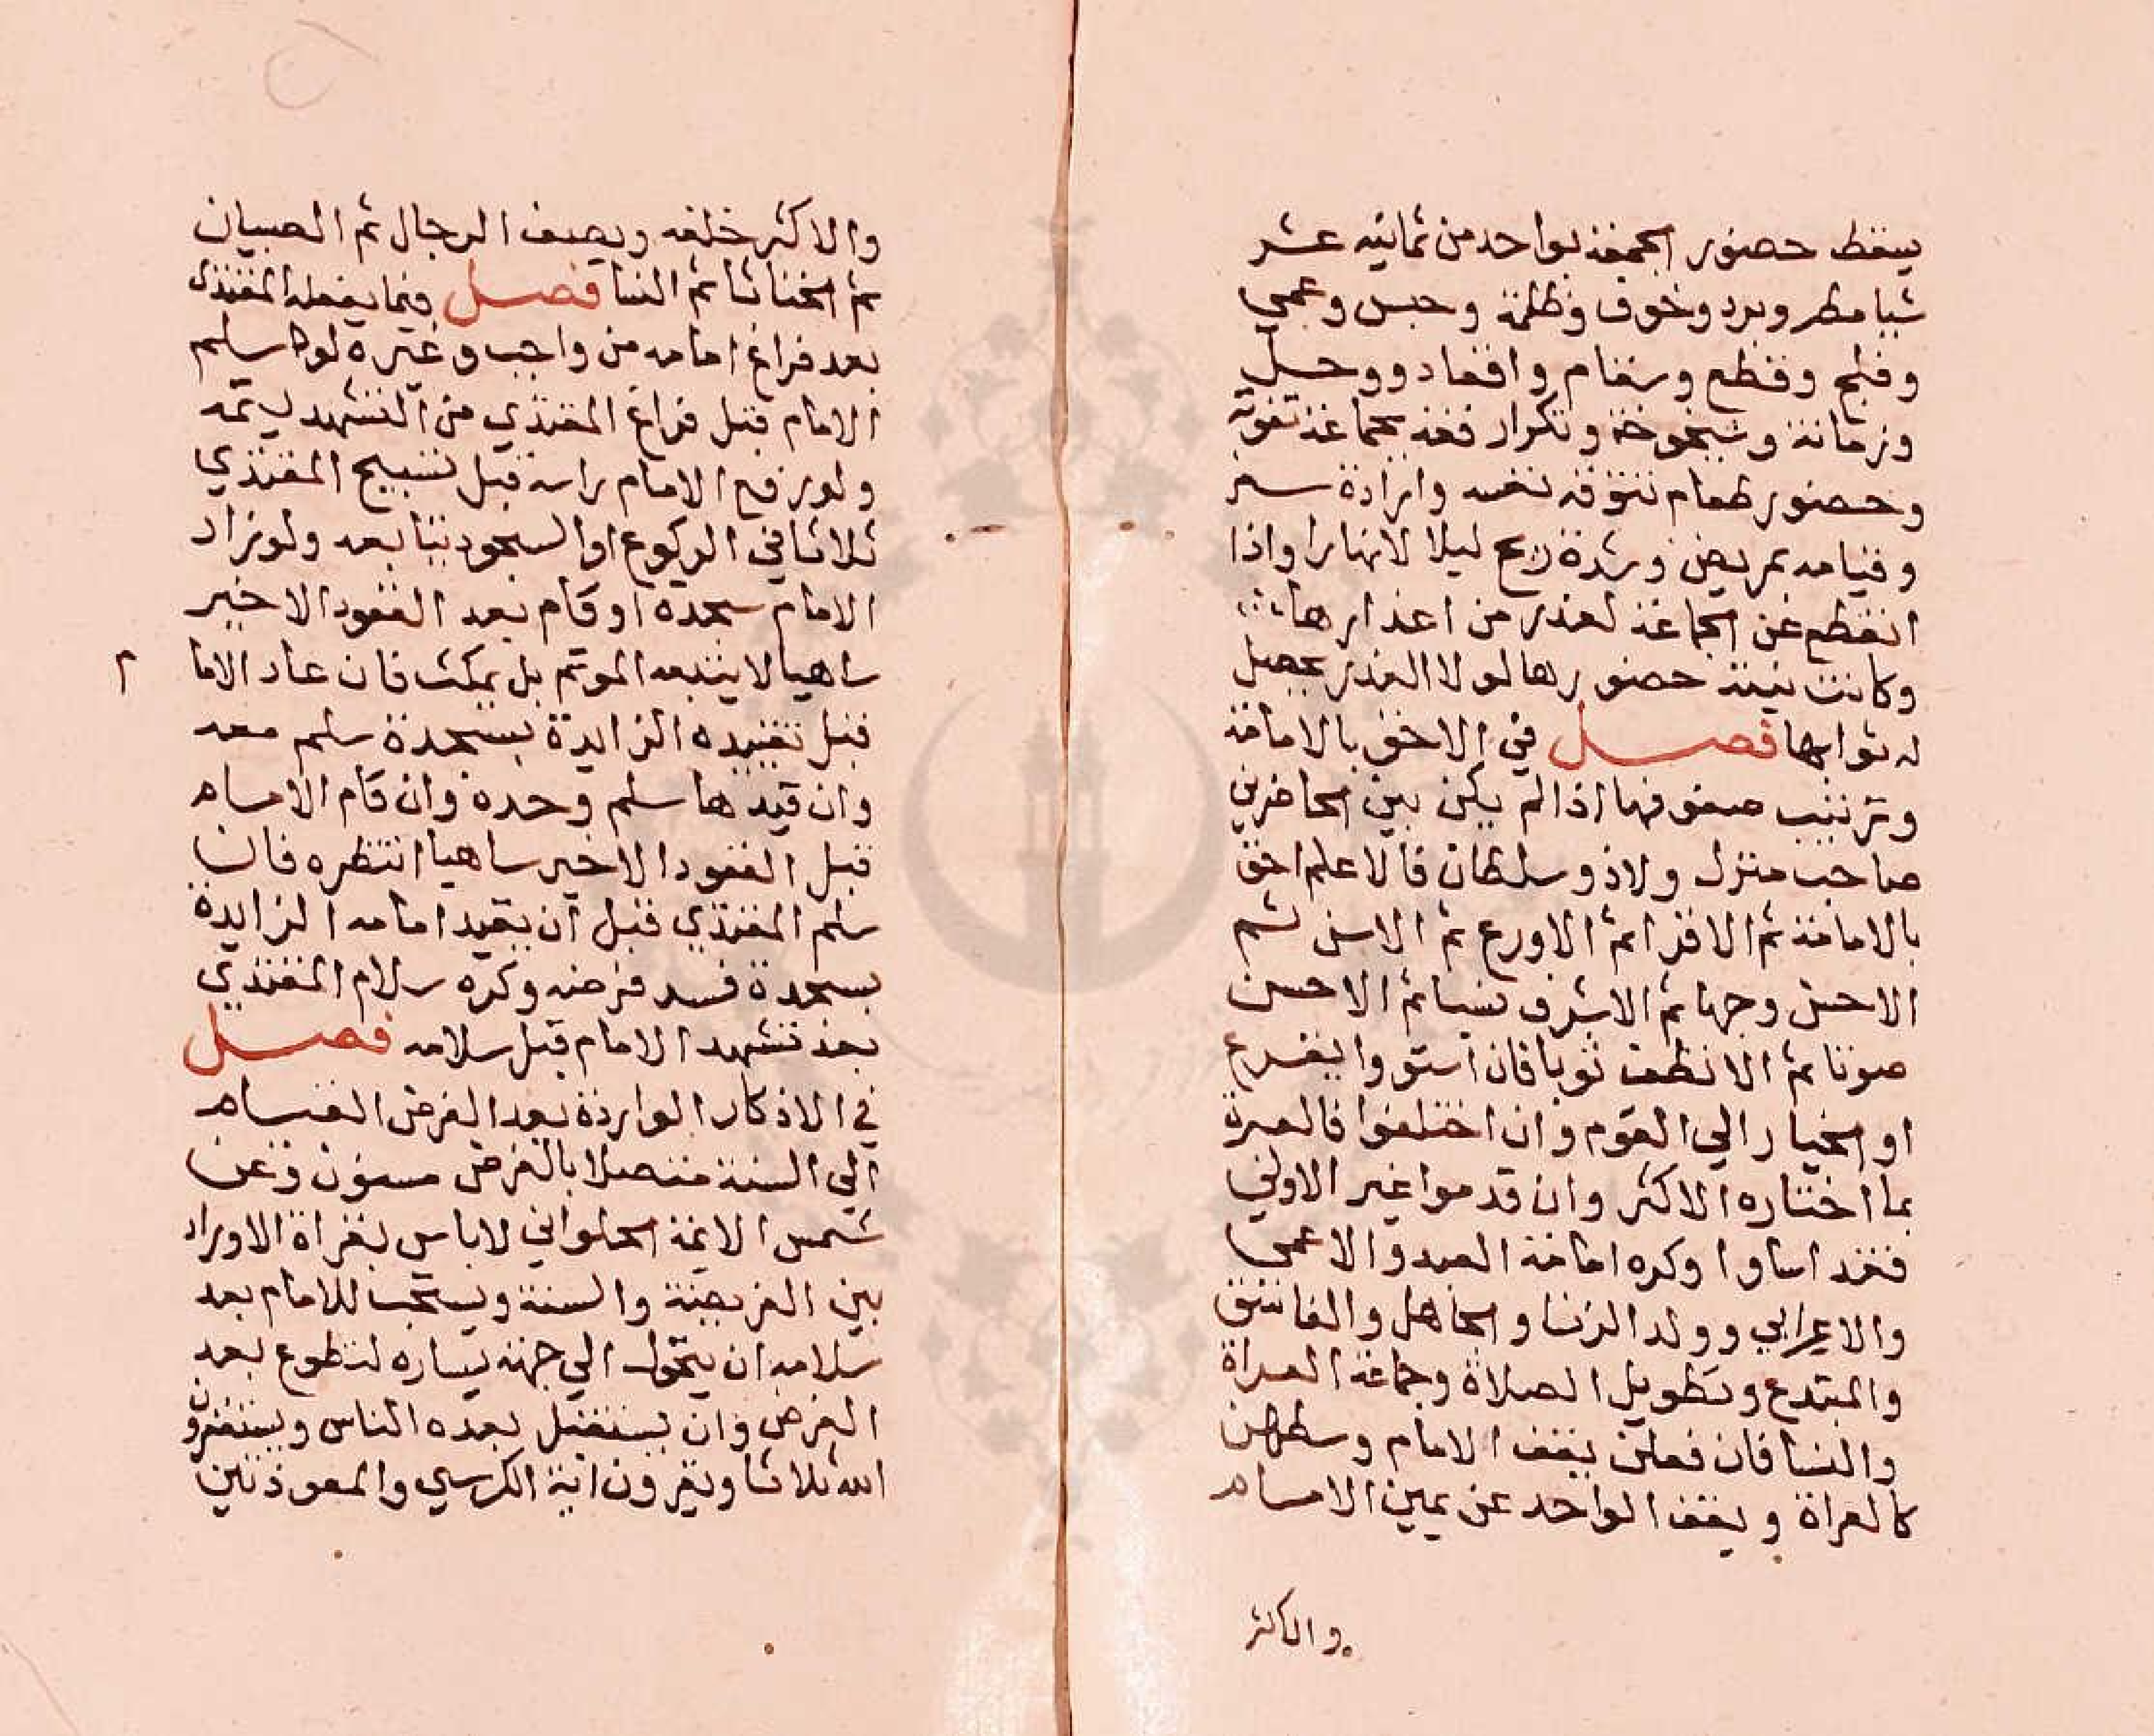 يسقط حضور الجمعه بواحد من ثمانيه عشر
شيا مطر وبرد وخوف وظلمة وحبس وعمي
وفلج وقطع وسقام واقعاد ووحل
وزمانة وشيخوخة وتكرار فقه بجماعة تفوته
وحضور طعام تتوقه نفسه وارادة سفر
وقيامه بمريض وشدة ريح ليلا لا نهارا واذا
انقطع عن الجماعة لعذر من اعذارها
وكانت نيته حضورها لولا العذر يحصل
له ثوابها فصل في الاحق بالامامة
وترتيب صفوفها اذا لم يكن بين الحاضرين
صاحب منزل ولا ذو سلطان فالاعلم احق
بالامامة ثم الاقرا ثم الاورع ثم الاسن ثم
الاحسن وجها ثم الاشرف نسبا ثم الاحسن
صوتا ثم الانظف ثوبا فان استووا يقرع
او الخيار الي القوم وان اختلفوا فالعبرة
بما اختاره الاكثر وان قدموا غير الاولي
فقد اساوا وكره امامة العبد والاعمي
والاعرابي وولد الزنا والجاهل والفاسق
والمبتدع وتطويل الصلاة وجماعة العراة
والنسا فان فعلن يقف الامام وسطهن
كالعراة ويقف الواحد عن يمين الامام
والاكثر
والاكثر خلفه ويصف الرجال ثم الصبيان
ثم الخناثا ثم النسا فصل فيما يفعله المقتدي
بعد فراغ امامه من واجب وغيره لو سلم
الامام قبل فراغ المقتدي من التشهد يتمه
ولو رفع الامام راسه قبل تسبيح المقتدي
ثلاثا في الركوع او السجود يتابعه ولو زاد
الامام سجدة او قام بعد القعود الاخير
ساهيا لا يتبعه الموتم بل يمكث فان عاد الاما م
قبل تقييده الزايدة بسجدة سلم معه
وان قيدها سلم وحده وان قام الامام
قبل القعود الاخير ساهيا انتظره فان
سلم المقتدي قبل ان يقيد امامه الزايدة
بسجدة فسد فرضه وكره سلام المقتدي
بعد تشهد الامام قبل سلامه فصل
في الاذكار الواردة بعد الفرض القيام
الي السنة متصلا بالفرض مسنون وعن
شمس الايمة الحلواني لا باس بقراة الاوراد
بين الفريضة والسنة ويستحب للامام بعد
سلامه ان يتحول الي جهة يساره لتطوع بعد
الفرض وان يستقبل بعده الناس ويستغفرون
الله ثلاثا ويقرون اية الكرسي والمعوذتين